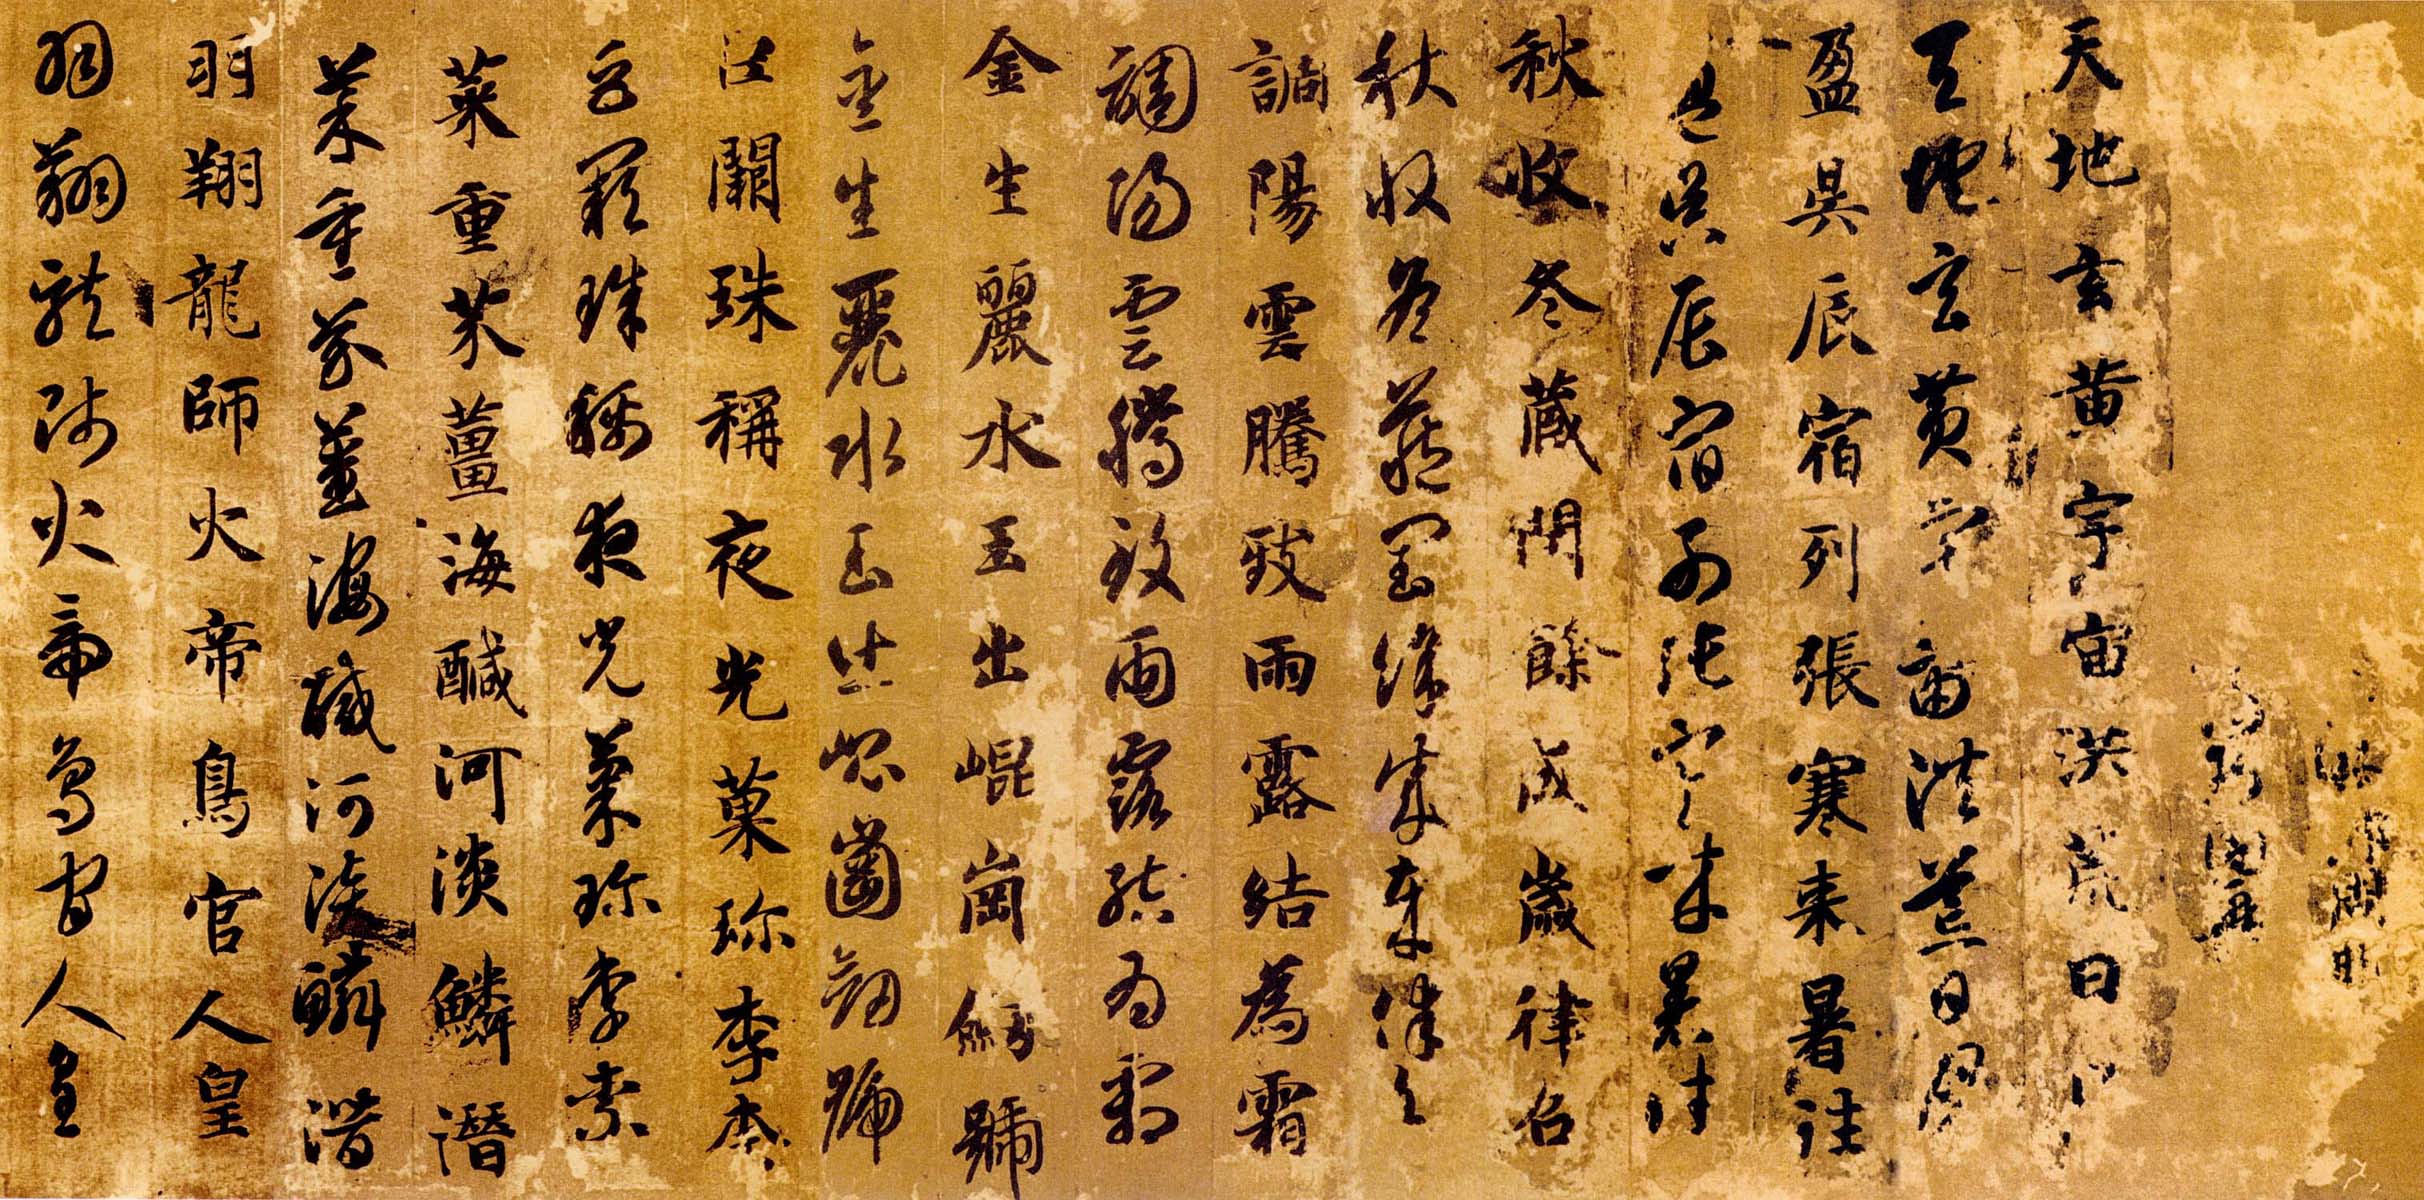 天地玄黄宇宙洪荒日
天地玄黄宇宙洪荒日月
盈昃辰宿列張寒来暑往
盈昃辰宿列張寒来暑往
秋收冬藏閏餘成歳律召
秋收冬藏閏餘成歳律召
調陽雲騰致雨露結為霜
調陽雲騰致雨露結為霜
金生麗水玉出崐崗劔號
金生麗水玉出崐崗劔號
巨闕珠稱夜光菓珎李柰
巨闕珠稱夜光菓珎李柰
菜重芥薑海醎河淡鱗潛
菜重芥薑海醎河淡鱗潛
羽翔龍師火帝鳥官人皇
羽翔龍師火帝鳥官人皇